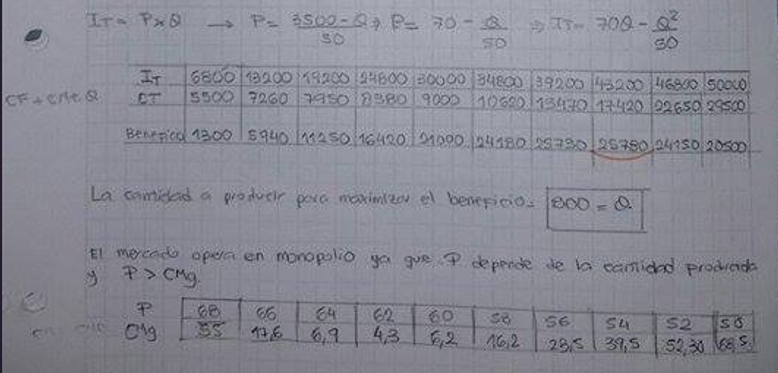 IT = P x Q → P = 3500 - Q / 50 → P = 70 - Q / 50 ⇒ IT = 70Q - Q² / 50
IT 6800 13200 19200 24800 30000 34800 39200 43200 46800 50000
CF + CMe Q CT 5500 7260 7950 8380 9000 10620 13470 17420 22650 29500
Beneficio 1300 5940 11250 16420 21000 24180 25730 25780 24150 20500
La cantidad a producir para maximizar el beneficio = 800 = Q
El mercado opera en monopolio ya que P depende de la cantidad producida
y P > CMg.
P 68 66 64 62 60 58 56 54 52 50
CMg 55 17,6 6,9 4,3 6,2 16,2 28,5 39,5 52,30 68,5